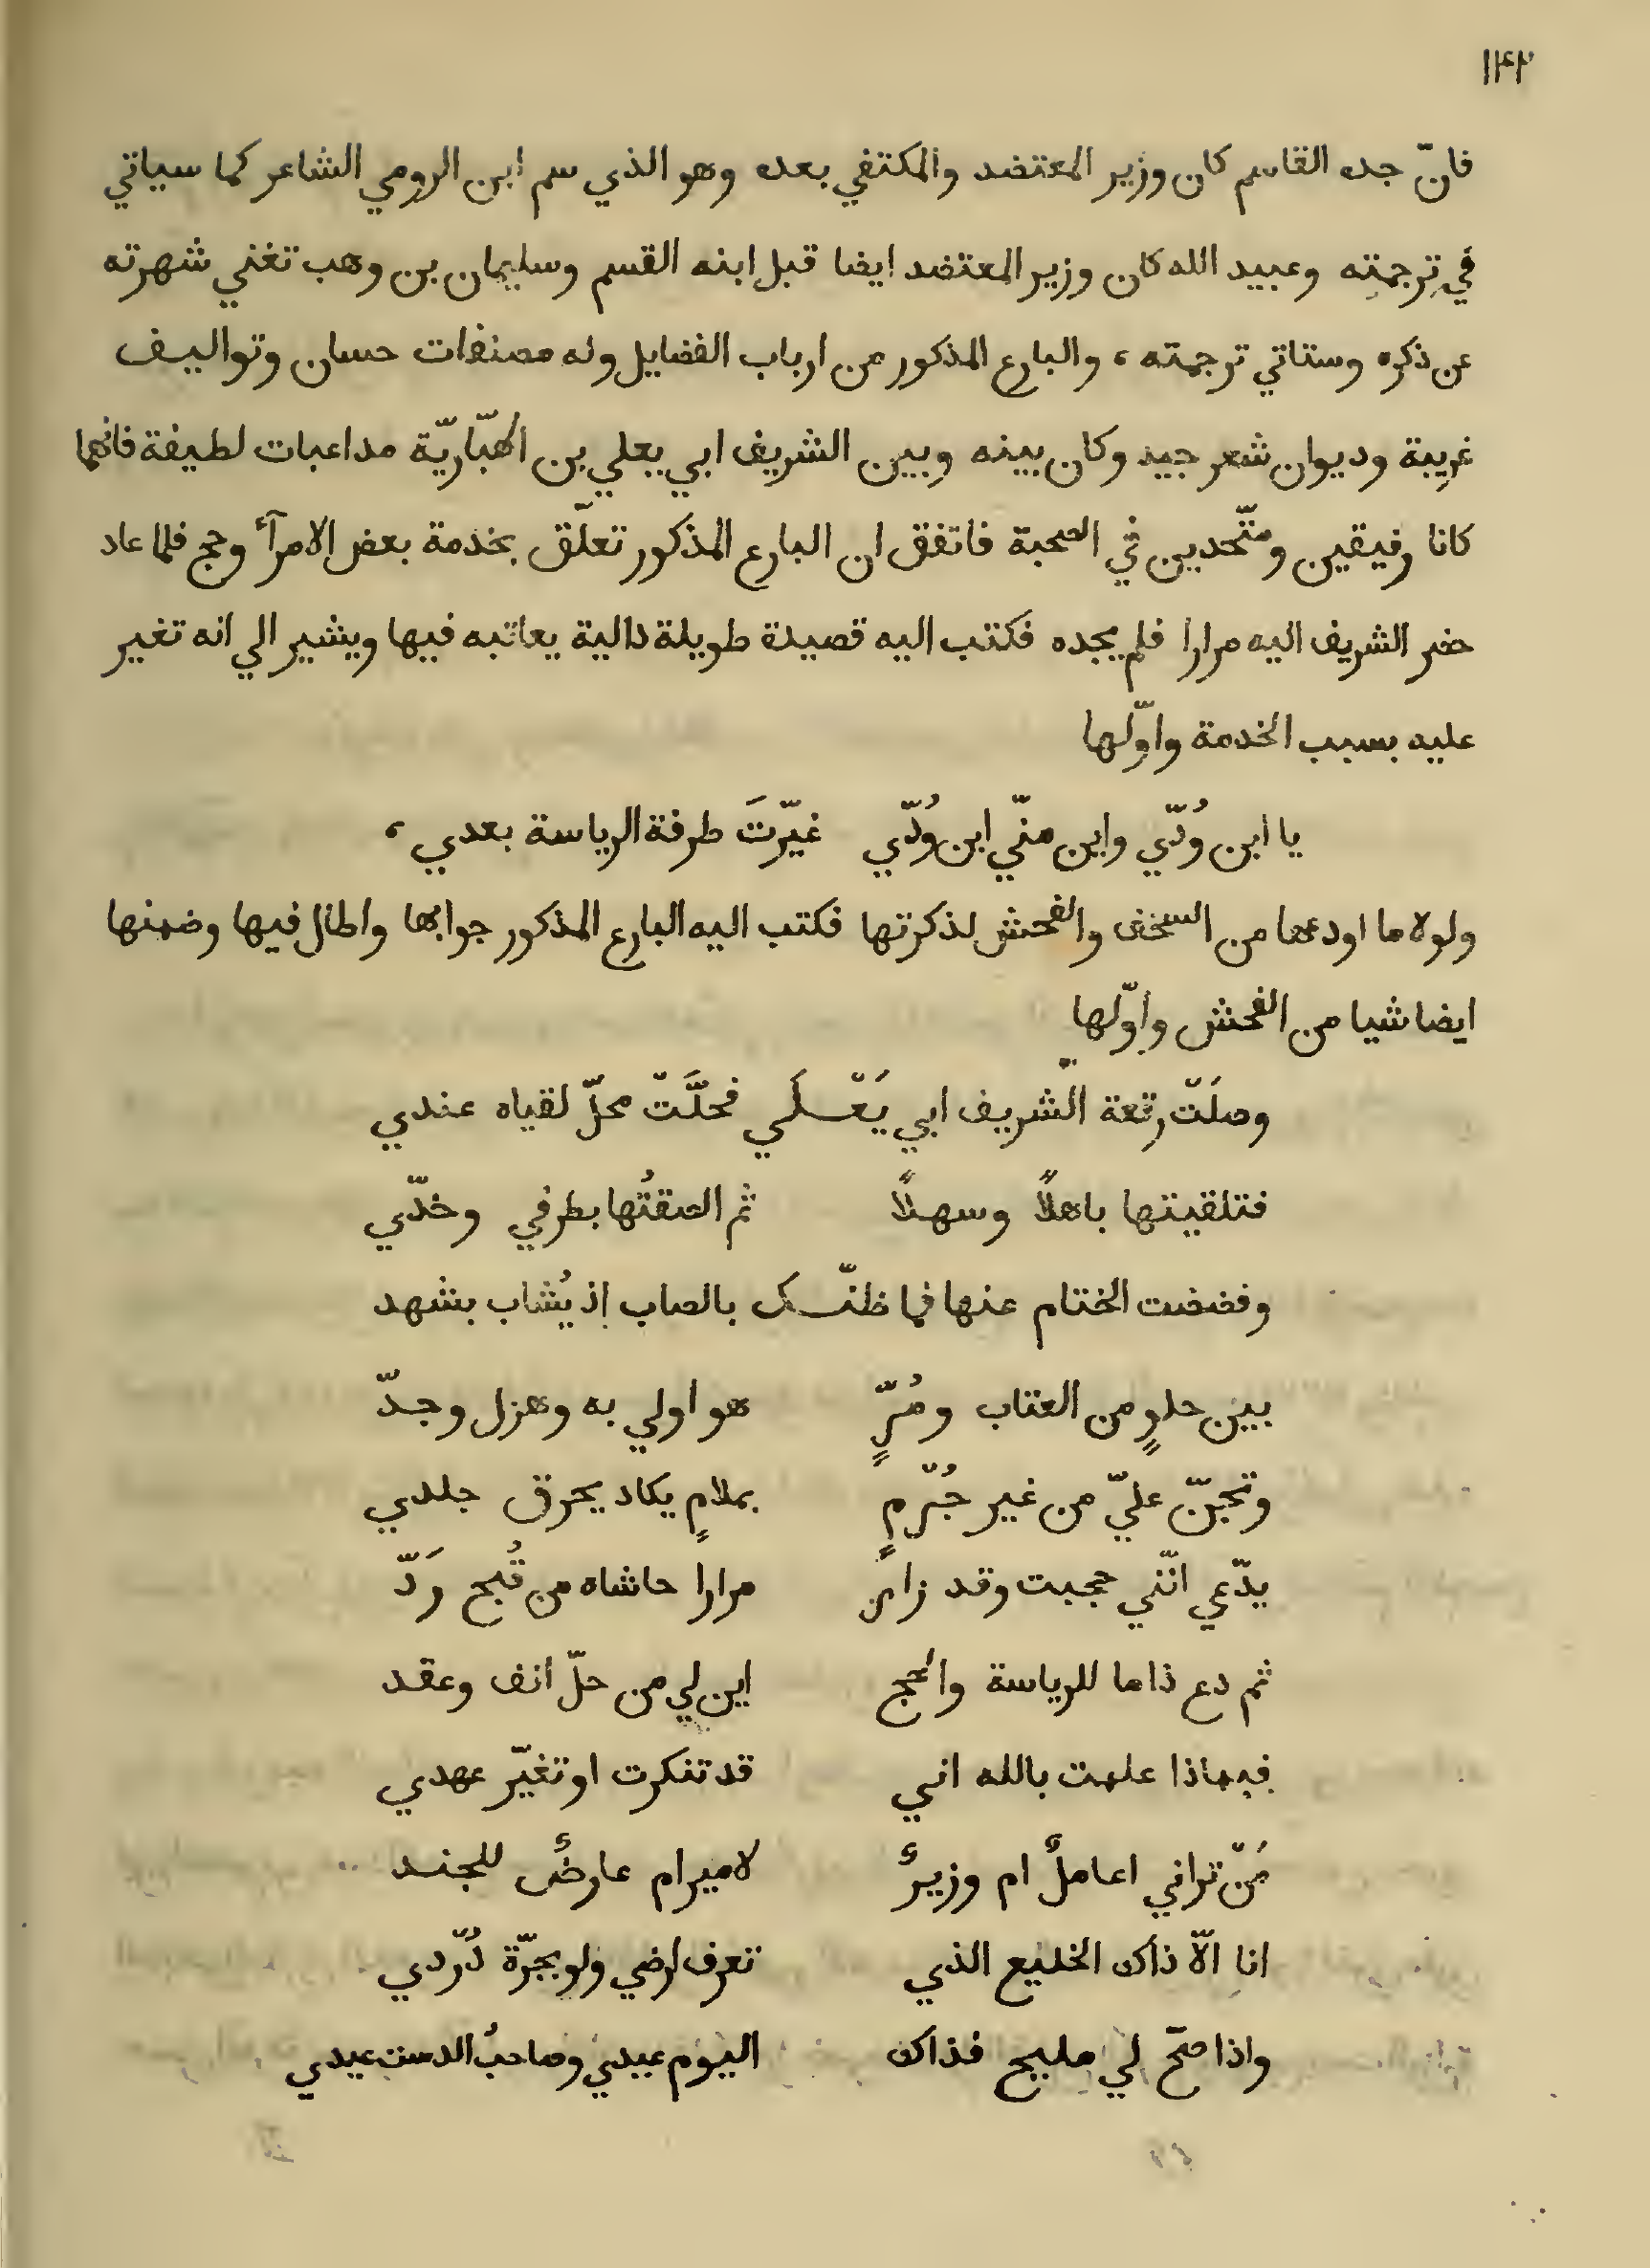 ١١٤٢
فانّ جده القاسم كان وزير المعتضد والمكتفي بعده وهو الذي سم ابن الرومي الشاعر كما سياتي
في ترجمته وعبيد الله كان وزير المعتضد ايضا قبل ابنه القسم وسليمان بن وهب تغني شهرته
عن ذكره وستاتي ترجمته ، والبارع المذكور من ارباب الفضايل وله مصنفات حسان وتواليف
غريبة وديوان شعر جيد وكان بينه وبين الشريف ابي يعلي بن الهبّاريّة مداعبات لطيفة فانهما
كانا رفيقين ومتّحدين في الصحبة فاتفق ان البارع المذكور تعلّق بخدمة بعض الامرآء وحج فلما عاد
حضر الشريف اليه مرارا فلم يجده فكتب اليه قصيدة طويلة دالية يعاتبه فيها ويشير الي انه تغير
عليه بسبب الخدمة واوّلها
يا ابن وُدّي واين منّي ابن وُدّي غيّرتَ طرفة الرياسة بعدي ،
ولولا ما اودعها من السخف والفحش لذكرتها فكتب اليه البارع المذكور جوابها واطال فيها وضمنها
ايضا شيا من الفحش واوّلها
وصلَتْ رقعة الشّريف ابي يَعْلَي فحلَّتْ محلّ لقياه عندي
فتلقيتها باهلاً وسهلاً ثم الصقتُها بطرفي وخدّي
وفضضت الختام عنها فما ظنّك بالصاب إذ يُشاب بشهد
بين حلوٍ من العتاب ومُرٍّ هو اولي به وهزل وجدّ
وتجنّ عليّ من غير جُرْمٍ بملامٍ يكاد يحرق جلدي
يدّعي انّني حجبت وقد زار مرارا حاشاه من قُبح رَدّ
ثم دع ذا ما للرياسة والحج ابن لي من حلّ أنف وعقد
فبماذا علمت بالله اني قد تنكرت او تغيّر عهدي
مَنْ تراني اعاملٌ ام وزيرٌ لامير ام عارضٌ للجند
انا الاّ ذاك الخليع الذي تعرف ارضي ولو بجرّة دُرْدي
واذا صحّ لي مليح فذاك اليوم عيدي وصاحبُ الدست عبدي